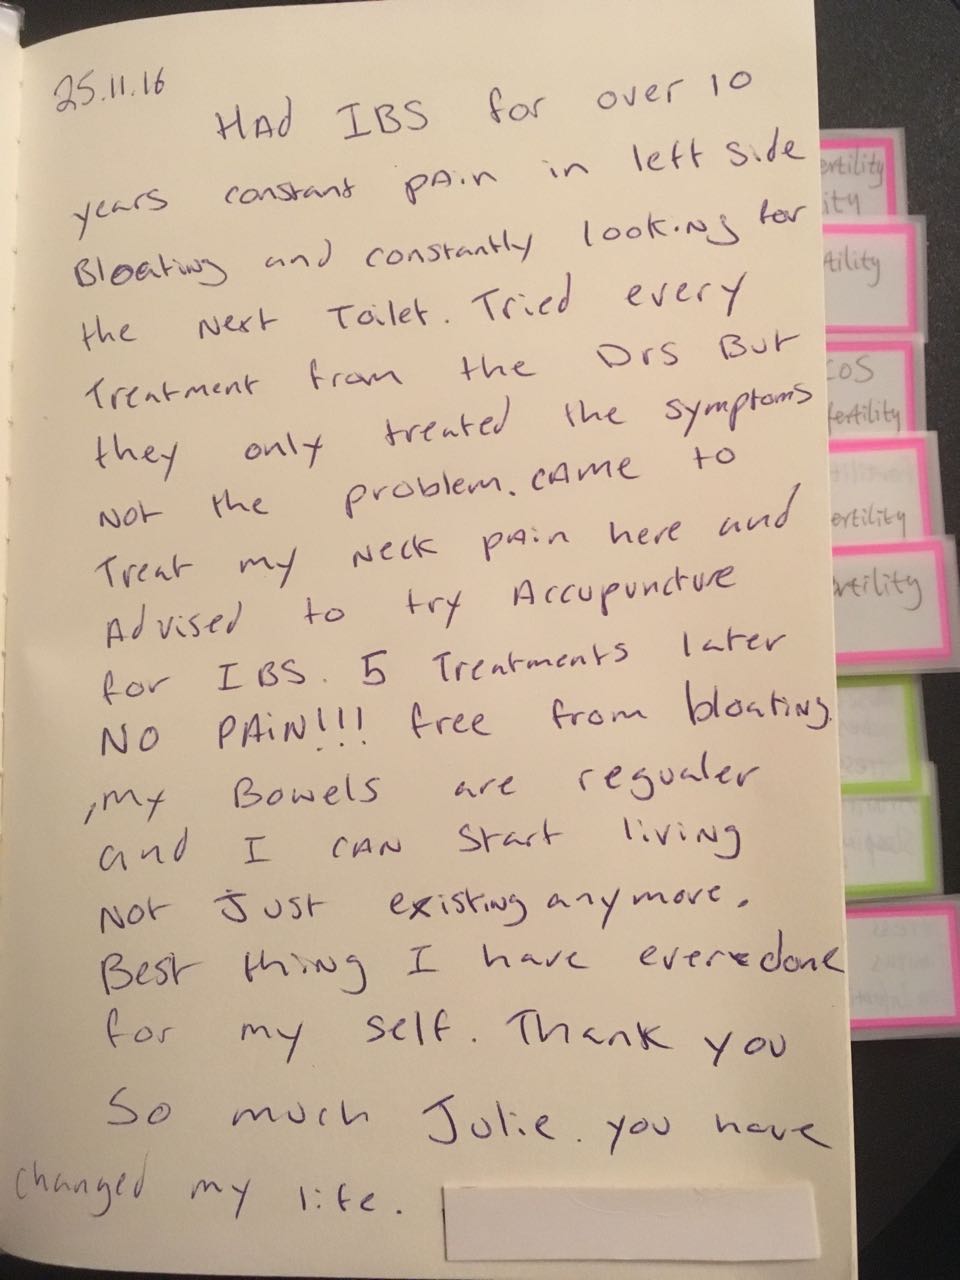 25.11.16
HAd IBS for over 10
years constant pAin in left side
Bloating and constantly looking for
the Next Toilet. Tried every
Treatment from the Drs But
they only treated the symptoms
Not the problem. cAme to
Treat my Neck pAin here and
Advised to try Accupuncture
for IBS. 5 Treatments later
NO PAiN!!! free from bloating
,my Bowels are regualer
and I CAN start living
Not Just existing anymore.
Best thing I have ever done
for my self. Thank you
So much Julie. you have
changed my life.
ertility
ity
tility
COS
fertility
ertility
ertility